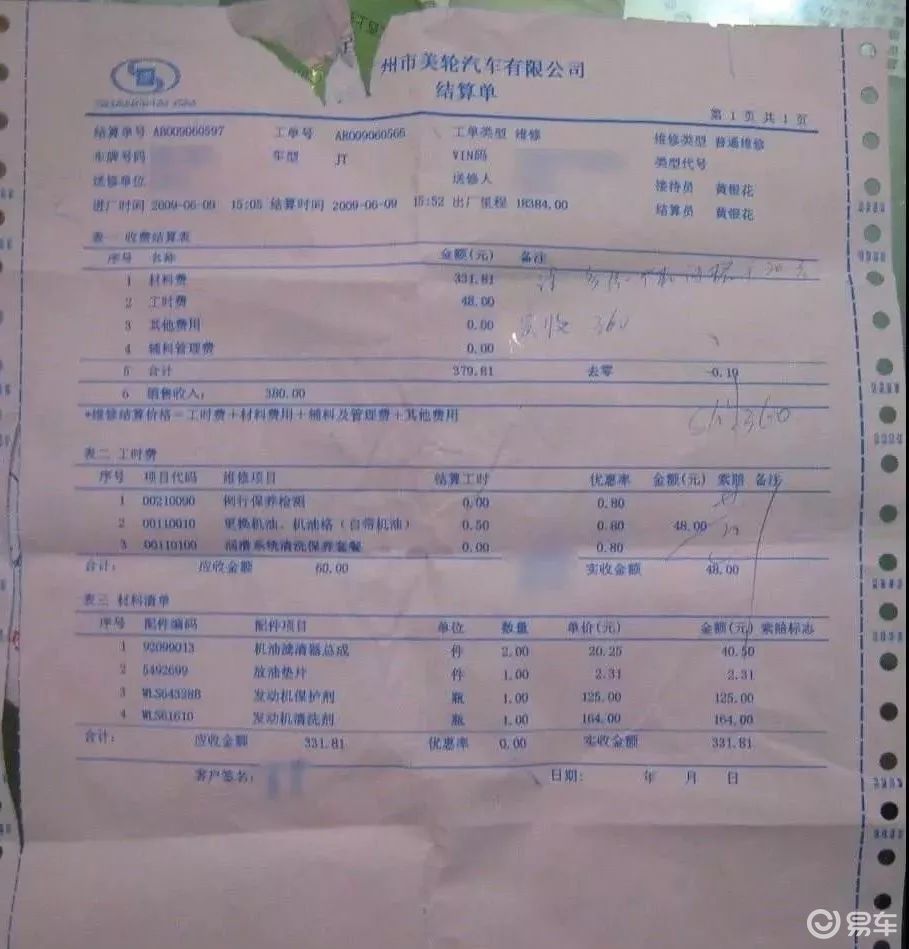 州市美轮汽车有限公司
结算单
第 1 页 共 1 页
结算单号 AB009060597 工单号 AR009060565 工单类型 维修 维修类型 普通维修
车牌号码 车型 JT VIN码 类型代号
送修单位 送修人 接待员 黄银花
进厂时间 2009-06-09 15:05 结算时间 2009-06-09 15:52 出厂里程 18384.00 结算员 黄银花
表一 收费结算表
序号 名称 金额(元) 备注
1 材料费 331.81
2 工时费 48.00
3 其他费用 0.00 实收 360
4 辅料管理费 0.00
5 合计 379.81 去零 -0.19
6 销售收入: 380.00
*维修结算价格=工时费+材料费用+辅料及管理费+其他费用
360
表二 工时费
序号 项目代码 维修项目 结算工时 优惠率 金额(元) 索赔 备注
1 00210090 例行保养检测 0.00 0.80
2 00110010 更换机油、机油格(自带机油) 0.50 0.80 48.00
3 00110100 润滑系统清洗保养套餐 0.00 0.80
合计: 应收金额 60.00 实收金额 48.00
表三 材料清单
序号 配件编码 配件项目 单位 数量 单价(元) 金额(元) 索赔标志
1 92099013 机油滤清器总成 件 2.00 20.25 40.50
2 5492699 放油垫片 件 1.00 2.31 2.31
3 WLS64328B 发动机保护剂 瓶 1.00 125.00 125.00
4 WLS61610 发动机清洗剂 瓶 1.00 164.00 164.00
合计: 应收金额 331.81 优惠率 0.00 实收金额 331.81
客户签名: 日期: 年 月 日
易车